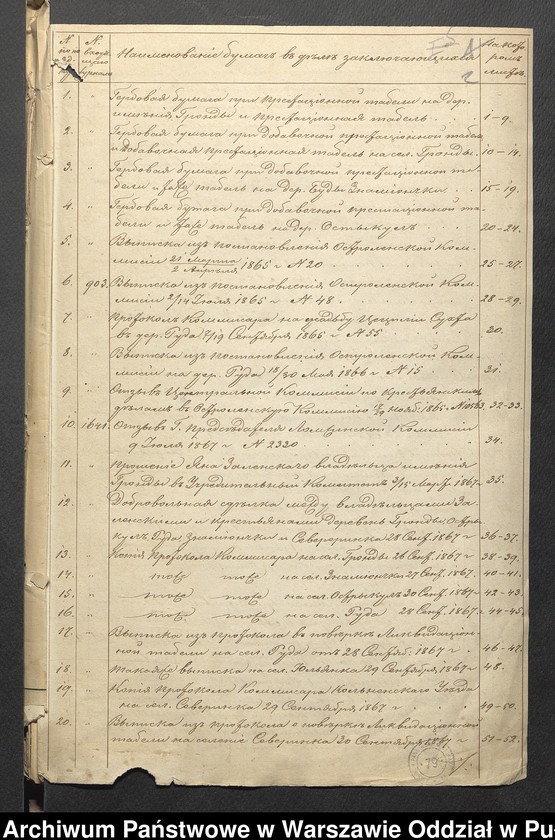 Наименованіе бумагъ въ дѣлѣ заключающихся
На кото
ромъ
листѣ.
1. " Гербовая бумага при престаціонной табели на дер.
имѣнія Гронды и престаціонная табель . . 1-9.
2. " Гербовая бумага при добавочной престаціонной табел
и добавочная престаціонная табель на сел. Гронды. 10-14.
3. " Гербовая бумага при добавочной престаціонной та-
бели и тоже табель на дер. Гуды Знаміончки . . 15-19.
4. " Гербовая бумага при добавочной престаціонной та-
бели и тоже табель на дер. . . 20-24.
5. " Выписка изъ постановленія Остроленской Ком-
мисіи 21 Марта/2 Апрѣля 1865 г. N 20 . . . 25-27.
6. 903. Выписка изъ постановленія Остроленской Ком-
мисіи 2/14 Іюля 1865 г. N 48. . . . 28-29.
7. " Протоколъ Коммисара на усадьбу
въ дер. Гуда 7/19 Сентября 1865 г. N 55 . . . 30.
8. " Выписка изъ постановленія Остроленской Ком-
мисіи на дер. Гуда 18/30 Мая 1866 г. N 15 . . . 31.
9. " Отзывъ Центральной Коммисіи по Крестьянскимъ
дѣламъ въ Остроленскую Коммисію Нояб. 1865 32-33.
10. 1641. Отзывъ Г. Предсѣдателя Ломженской Коммисіи
9 Іюля 1867 г. N 2330. . . . 34.
11. " Прошеніе Яна Заленскаго владѣльца имѣнія
Гронды въ Учредительный Комитетъ 3/15 Март. 1867. 35.
12. " Добровольная сдѣлка между владѣльцами За-
ленскими и крестьянами деревень Гронды, Остры-
кулъ, Гуда, Знаміончки и Северинка 28 Сент. 1867 г. 36-37.
13. " Копія Протокола Коммисара на сел. Гронды 26 Сент. 1867 г. 38-39.
14. " тоже тоже на сел. Знаміончки 27 Сент. 1867. 40-41.
15. " тоже тоже на сел. Острыкулъ 30 Сент. 1867 г. 42-43.
16. " тоже тоже на сел. Гуда 28 Сент. 1867. 44-45.
17. " Выписка изъ протокола о повѣркѣ Ликвидаціон-
ной табели на сел. Гуда отъ 28 Сент. 1867 г. . 46-47.
18. " Такая же выписка на сел. Юльянка 29 Сентября 1867 г. 48.
19. " Копія протокола Коммисара Кольненскаго Уѣзда
на сел. Северинка 29 Сентября 1867 г. . . 49-50.
20. " Выписка изъ протокола о повѣркѣ Ликвидаціонной
табели на селеніе Северинка 30 Сентября 1867 г. 51-52.
79
Archiwum Państwowe w Warszawie Oddział w Pu